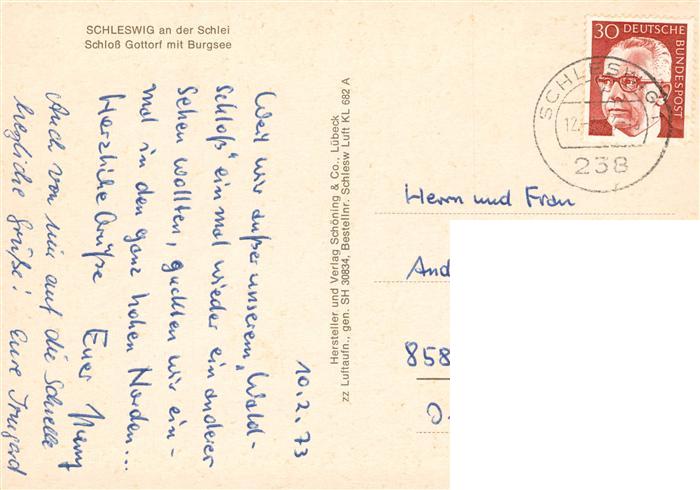 SCHLESWIG an der Schlei
Schloß Gottorf mit Burgsee
10.2.73
Weil wir außer unserem „Wald-
schloß" einmal wieder ein anderes
sehen wollten, guckten wir ein-
mal in den ganz hohen Norden...
Herzliche Grüße Euer
Auch von mir auf die Schnelle
herzliche Grüße! Eure Irmgard
Hersteller und Verlag Schöning & Co., Lübeck
zz Luftaufn., gen. SH 30834, Bestellnr. Schlesw Luft KL 682 A
30 DEUTSCHE
BUNDESPOST
SCHLESWIG 1
12.
238
Herrn und Frau
And
858